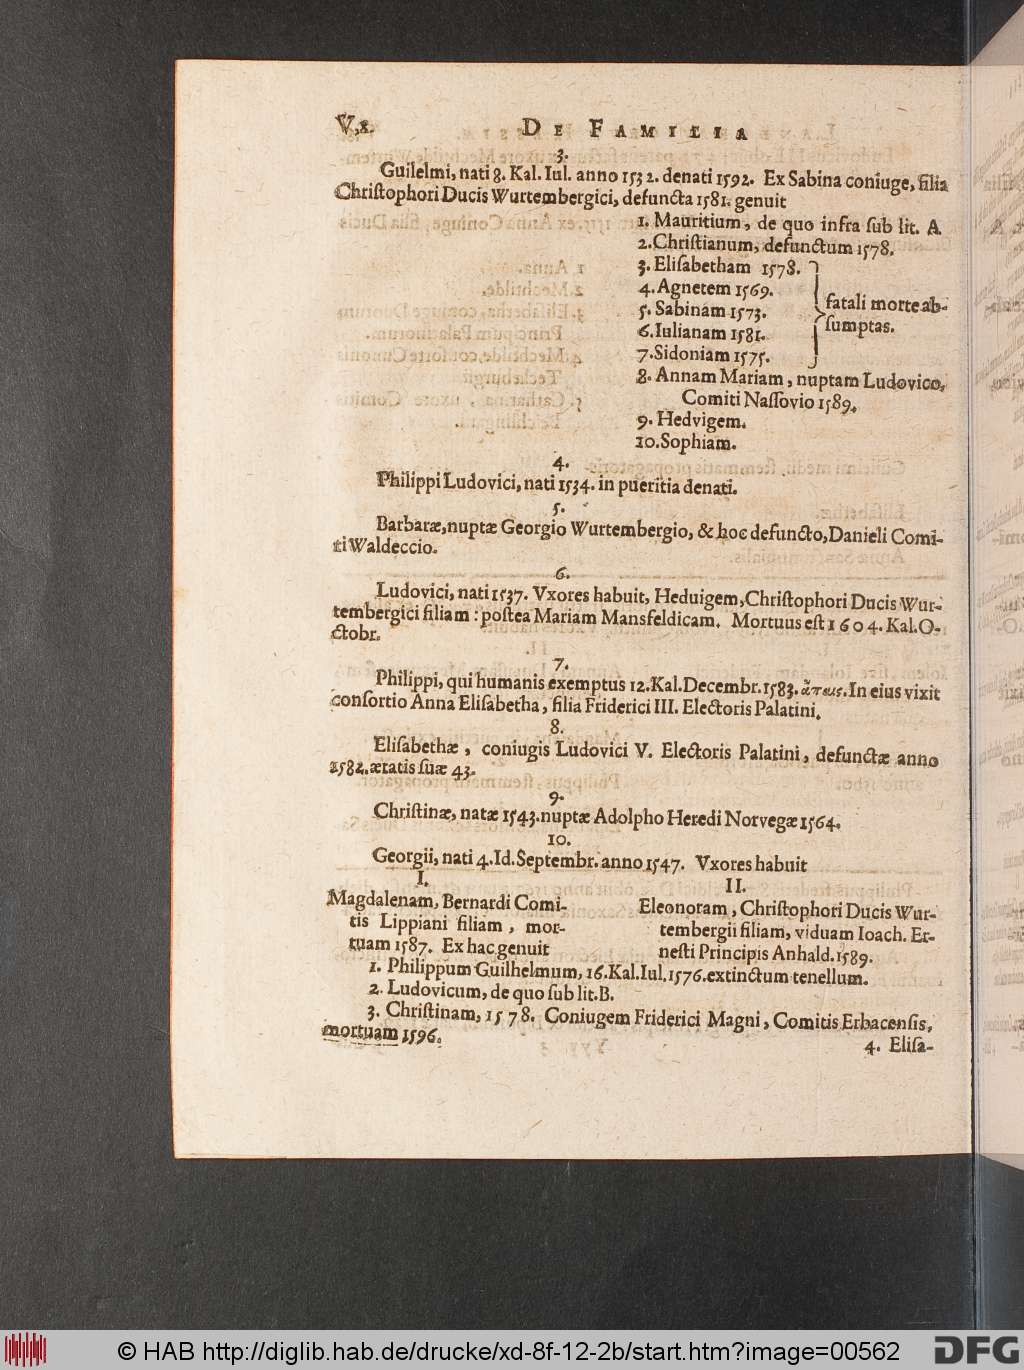 V,x. DE FAMILIA
3.
Guilelmi, nati 8. Kal. Iul. anno 1532. denati 1592. Ex Sabina coniuge, filia
Christophori Ducis Wurtembergici, defuncta 1581. genuit
1. Mauritium, de quo infra sub lit. A.
2. Christianum, defunctum 1578.
3. Elisabetham 1578.
4. Agnetem 1569.
5. Sabinam 1573.
6. Iulianam 1581.
7. Sidoniam 1575.
fatali morte ab-
sumptas.
8. Annam Mariam, nuptam Ludovico,
Comiti Nassovio 1589.
9. Hedvigem.
10. Sophiam.
4.
Philippi Ludovici, nati 1534. in pueritia denati.
5.
Barbaræ, nuptæ Georgio Wurtembergio, & hoc defuncto, Danieli Comi-
ti Waldeccio.
6.
Ludovici, nati 1537. Vxores habuit, Heduigem, Christophori Ducis Wur-
tembergici filiam: postea Mariam Mansfeldicam. Mortuus est 1604. Kal. O-
ctobr.
7.
Philippi, qui humanis exemptus 12. Kal. Decembr. 1583. In eius vixit
consortio Anna Elisabetha, filia Friderici III. Electoris Palatini.
8.
Elisabethæ, coniugis Ludovici V. Electoris Palatini, defunctæ anno
1582. ætatis suæ 43.
9.
Christinæ, natæ 1543. nuptæ Adolpho Heredi Norvegæ 1564.
10.
Georgii, nati 4. Id. Septembr. anno 1547. Vxores habuit
I.
Magdalenam, Bernardi Comi-
tis Lippiani filiam, mor-
tuam 1587. Ex hac genuit
II.
Eleonoram, Christophori Ducis Wur-
tembergii filiam, viduam Ioach. Er-
nesti Principis Anhald. 1589.
1. Philippum Guilhelmum, 16. Kal. Iul. 1576. extinctum tenellum.
2. Ludovicum, de quo sub lit. B.
3. Christinam, 1578. Coniugem Friderici Magni, Comitis Erbacensis,
mortuam 1596.
4. Elisa-
© HAB http://diglib.hab.de/drucke/xd-8f-12-2b/start.htm?image=00562
DFG